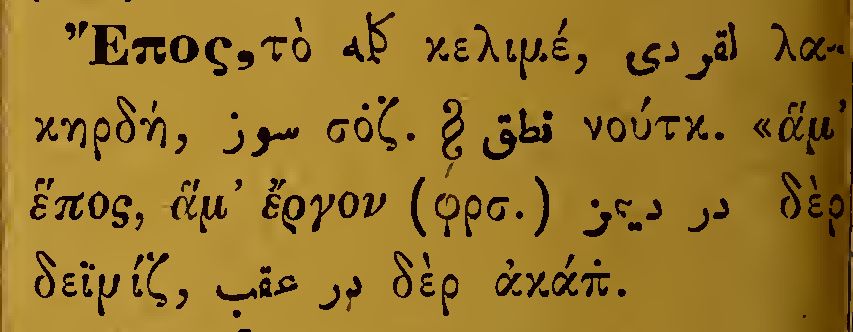 Ἔπος, τὸ كلمه κελιμέ, لقردی λα-
κηρδή, سوز σο̇ζ. § نطق νούτκ. «ἅμ’
ἔπος, ἅμ’ ἔργον (φρσ.) در دیمز δὲρ
δεϊμίζ, در عقب δὲρ ἀκάπ̇.